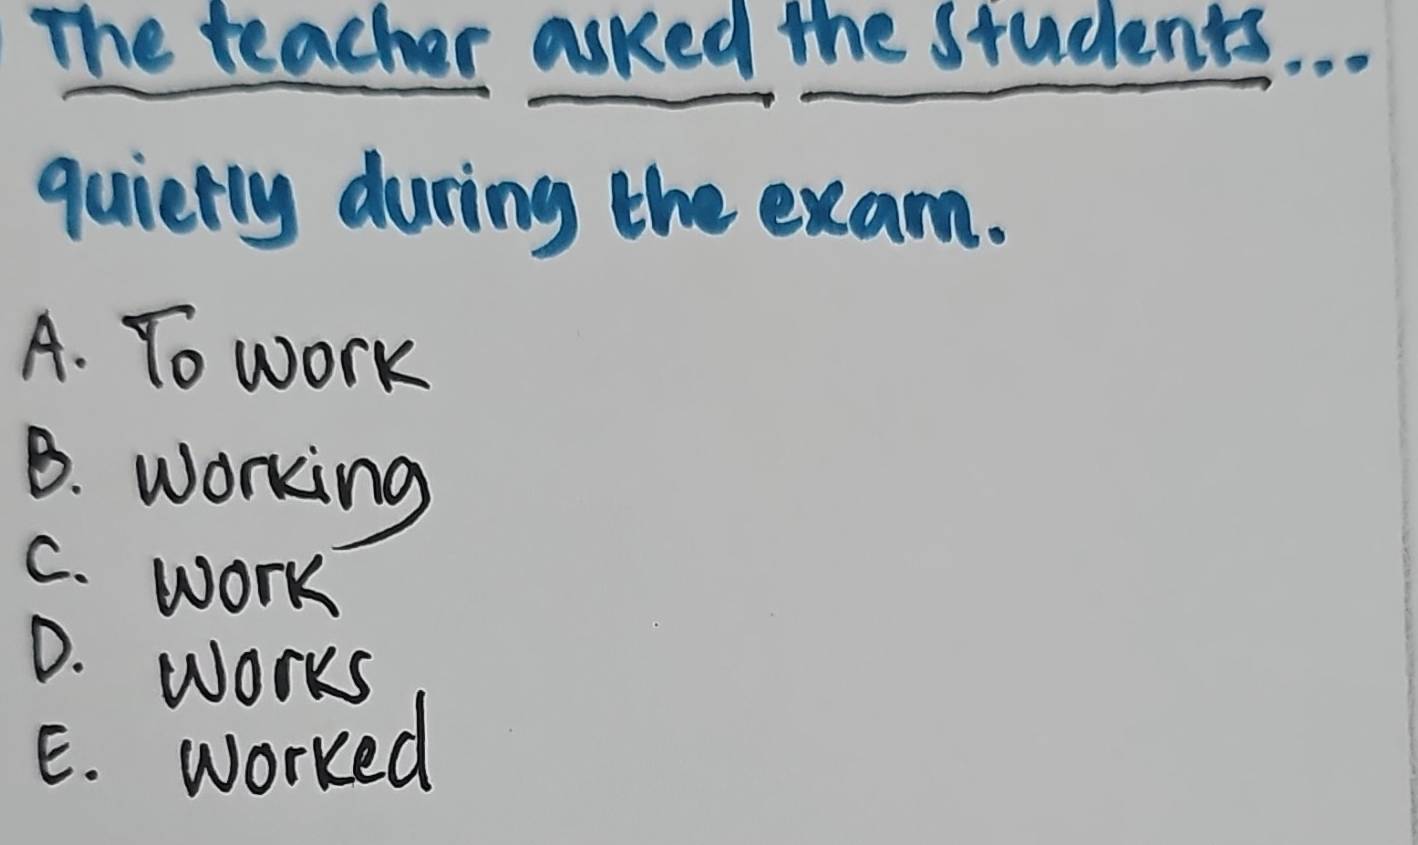 The teacher asked the students...
quietly during the exam.
A. To work
B. Working
C. Work
D. Works
E. Worked